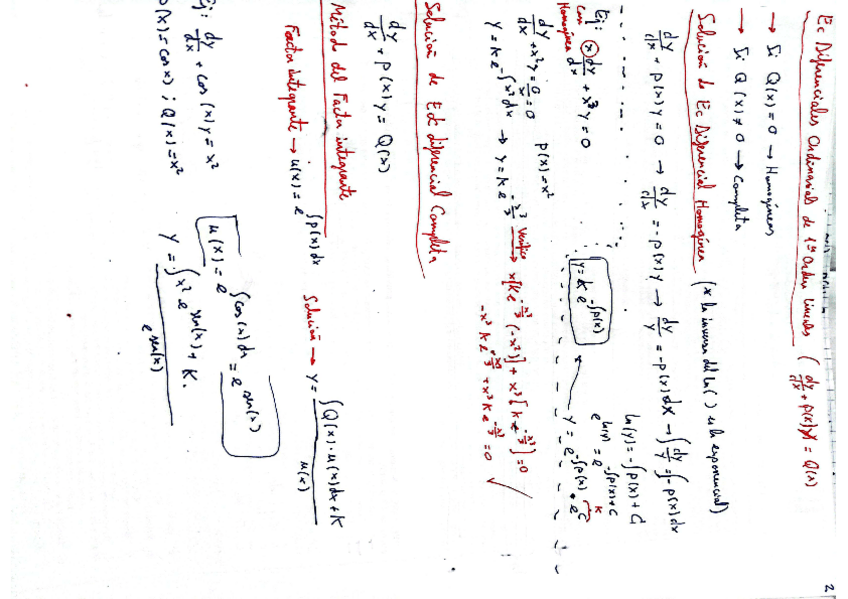 2
Ec Diferenciales Ordinarias de 1er Orden lineales (dy/dx + p(x)y = Q(x)
→ Si Q(x) = 0 → Homogéneas
→ Si Q(x) ≠ 0 → Completa
Solución de Ec Diferencial Homogénea (x la inversa del ln( ) es la exponencial)
dy/dx + p(x)y = 0 → dy/dx = -p(x)y → dy/y = -p(x)dx → ∫dy/y = ∫-p(x)dx
ln(y) = -∫p(x) + C
e^ln(y) = e^-∫p(x)+C
y = e^-∫p(x) · e^C
K
y = k e^-∫p(x)
Ej: x dy/dx + x³y = 0
Homogénea
dy/dx + x²y = 0/x = 0
p(x) = x²
y = k e^-∫x²dx → y = k e^-x³/3 Verifico → x[k e^-x³/3 (-x²)] + x³[k e^-x³/3] = 0
-x³ k e^-x³/3 + x³ k e^-x³/3 = 0 ✓
Solución de Ec diferencial Completa
dy/dx + p(x)y = Q(x)
Método del Factor integrante
Factor integrante → u(x) = e^∫p(x)dx Solución → y = ∫Q(x)·u(x)dx + K / u(x)
Ej: dy/dx + cos(x)y = x²
p(x) = cos(x) ; Q(x) = x²
u(x) = e^∫cos(x)dx = e^sen(x)
y = ∫x² e^sen(x) + K. / e^sen(x)